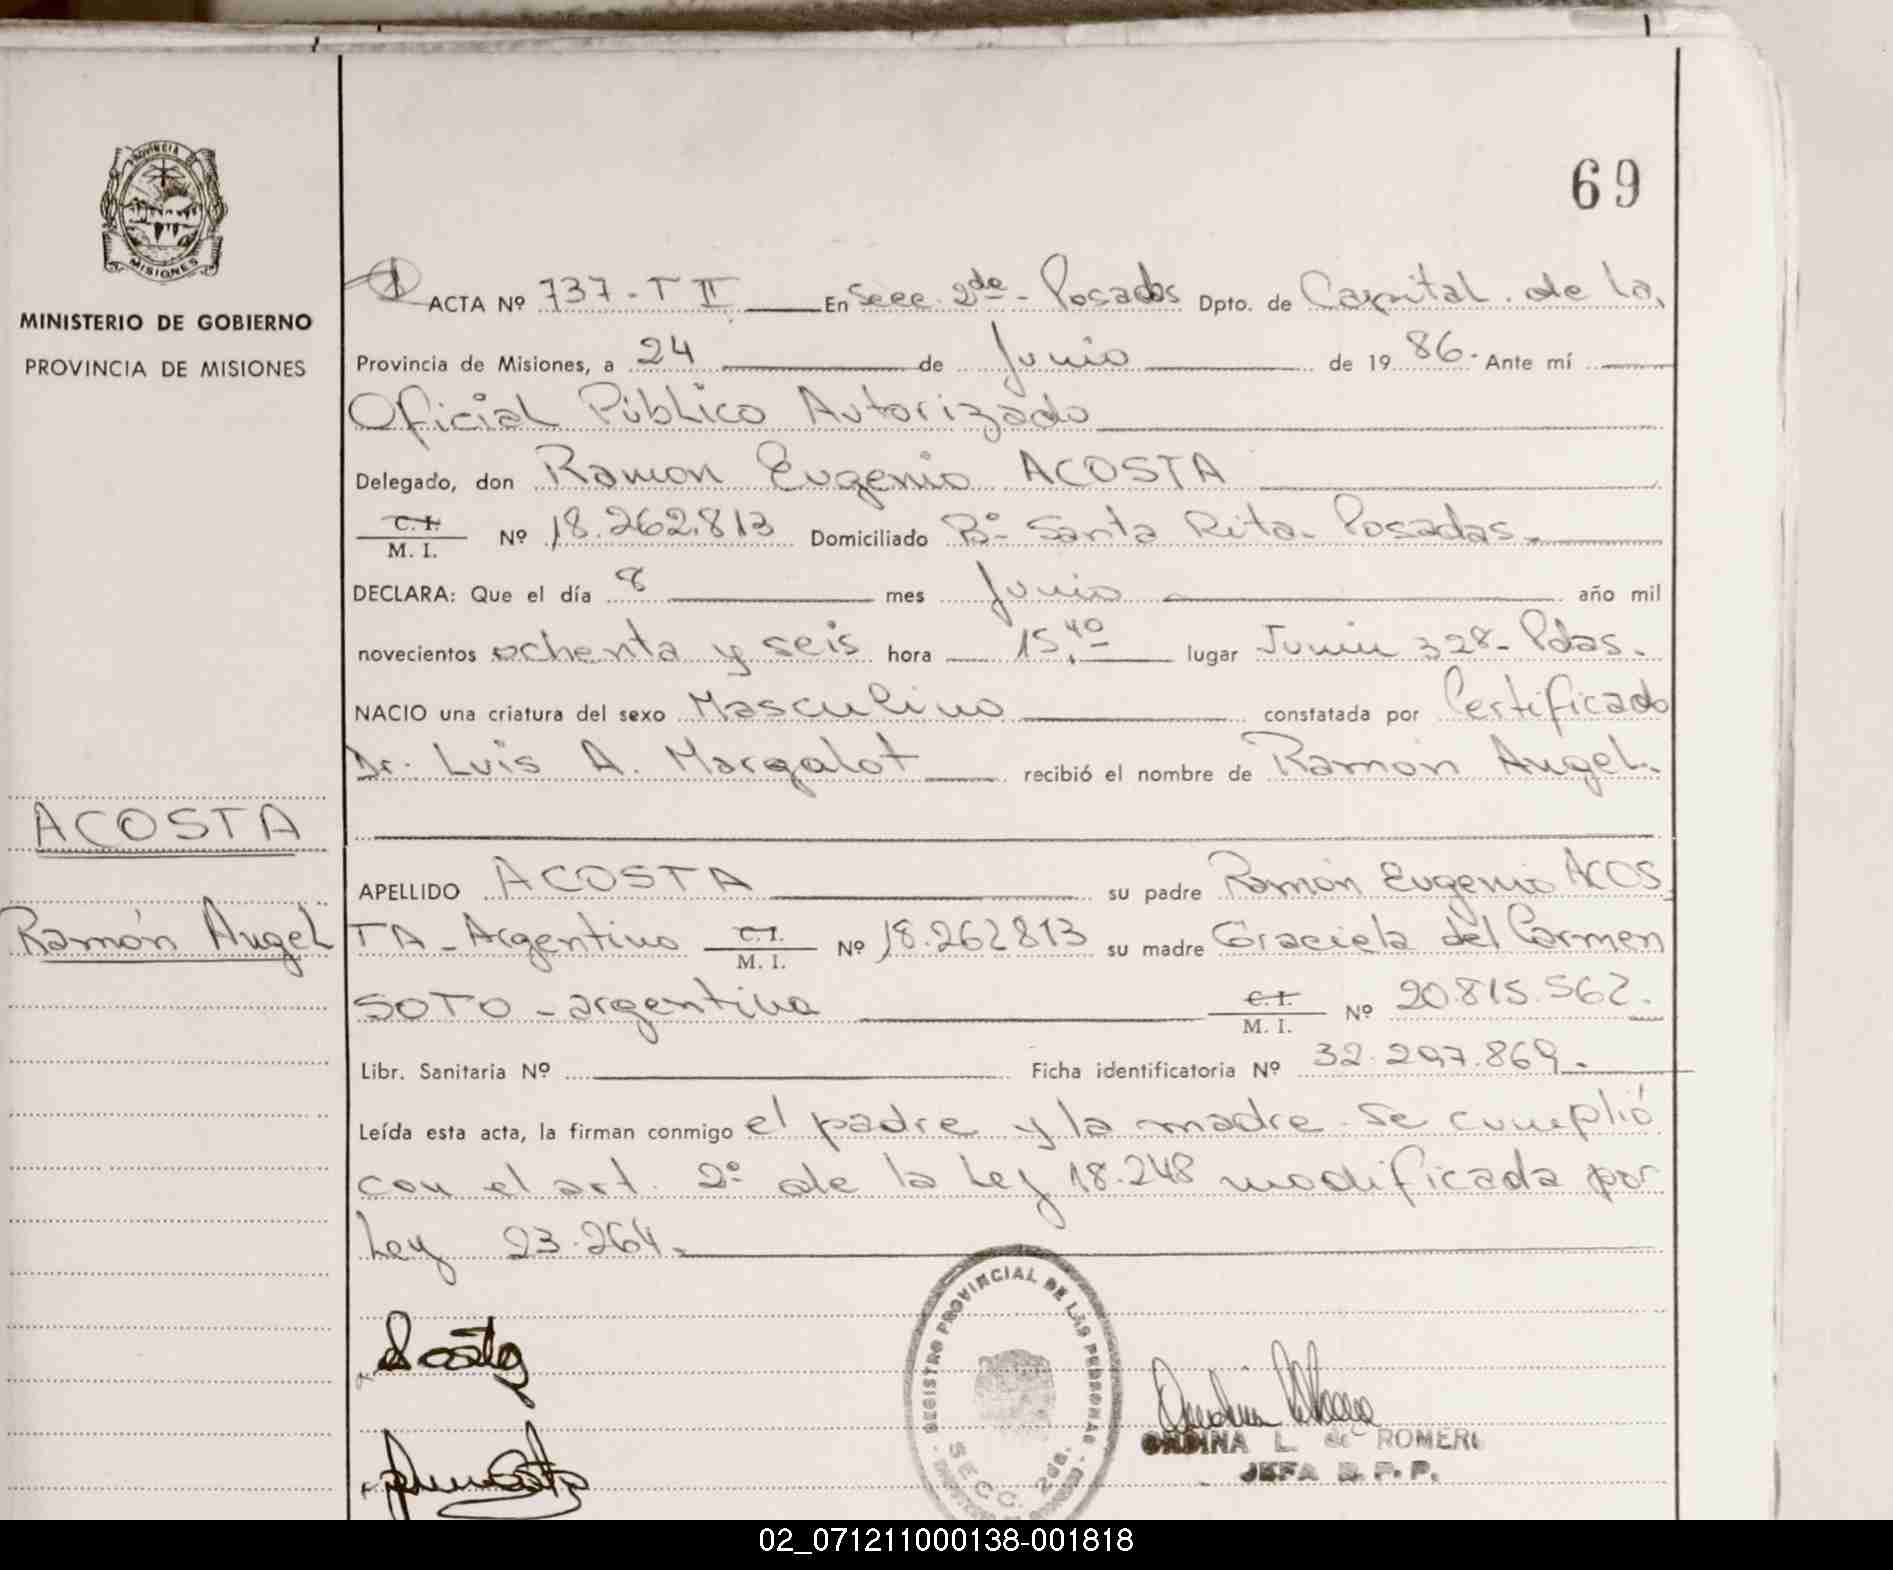 PROVINCIA DE
MISIONES
MINISTERIO DE GOBIERNO
PROVINCIA DE MISIONES
ACOSTA
Ramón Angel
69
ACTA Nº 737 - T II En Secc. 2da - Posadas Dpto. de Capital. de la
Provincia de Misiones, a 24 de Junio de 19 86. Ante mí
Oficial Público Autorizado
Delegado, don Ramon Eugenio ACOSTA
C. I.
M. I. Nº 18.262.813 Domiciliado Bº Santa Rita - Posadas.
DECLARA: Que el día 8 mes Junio año mil
novecientos ochenta y seis hora 15,40 lugar Junin 328 - Pdas.
NACIO una criatura del sexo Masculino constatada por Certificado
Dr. Luis A. Margalot recibió el nombre de Ramón Angel.
APELLIDO ACOSTA su padre Ramón Eugenio ACOS
TA - Argentino C. I. M. I. Nº 18.262813 su madre Graciela del Carmen
SOTO - argentina C. I. M. I. Nº 20.815.562.
Libr. Sanitaria Nº Ficha identificatoria Nº 32.297.869.
Leída esta acta, la firman conmigo el padre y la madre. Se cumplió
con el art. 2º de la Ley 18.248 modificada por
Ley 23.264.
REGISTRO PROVINCIAL DE LAS PERSONAS
SECC. 2da.
ORDINA L. de ROMERO
JEFA R. P. P.
02_071211000138-001818